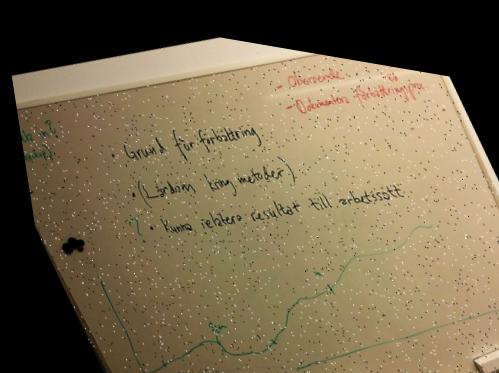 - Oberoende
- Dokumentera förbättringspro
• Grund för förbättring
• (Lärdom kring metoder)
? • Kunna relatera resultat till arbetssätt